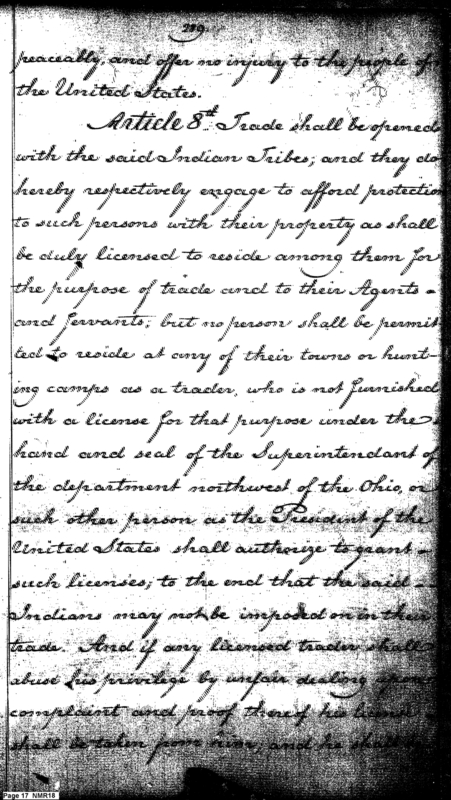 219.
peaceably, and offer no injury to the people of
the United States.
Article 8th. Trade shall be opened
with the said Indian Tribes; and they do
hereby respectively engage to afford protection
to such persons with their property as shall
be duly licensed to reside among them for
the purpose of trade and to their Agents -
and Servants; but no person shall be permit-
ted to reside at any of their towns or hunt-
ing camps as a trader, who is not furnished
with a license for that purpose under the
hand and seal of the Superintendant of
the department northwest of the Ohio, or
such other person as the President of the
United States shall authorize to grant -
such licenses; to the end that the said -
Indians may not be imposed on in their
trade. And if any licensed trader shall
abuse his privilege by unfair dealing upon
complaint and proof thereof his license
shall be taken from him; and he shall be
Page 17 NMR18